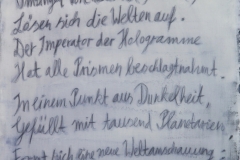 Lösen sich die Welten auf.
Der Imperator der Hologramme
Hat alle Prismen beschlagnahmt.
In einem Punkt aus Dunkelheit,
Gefüllt mit tausend Planetarien,
Formt sich eine neue Weltanschauung: